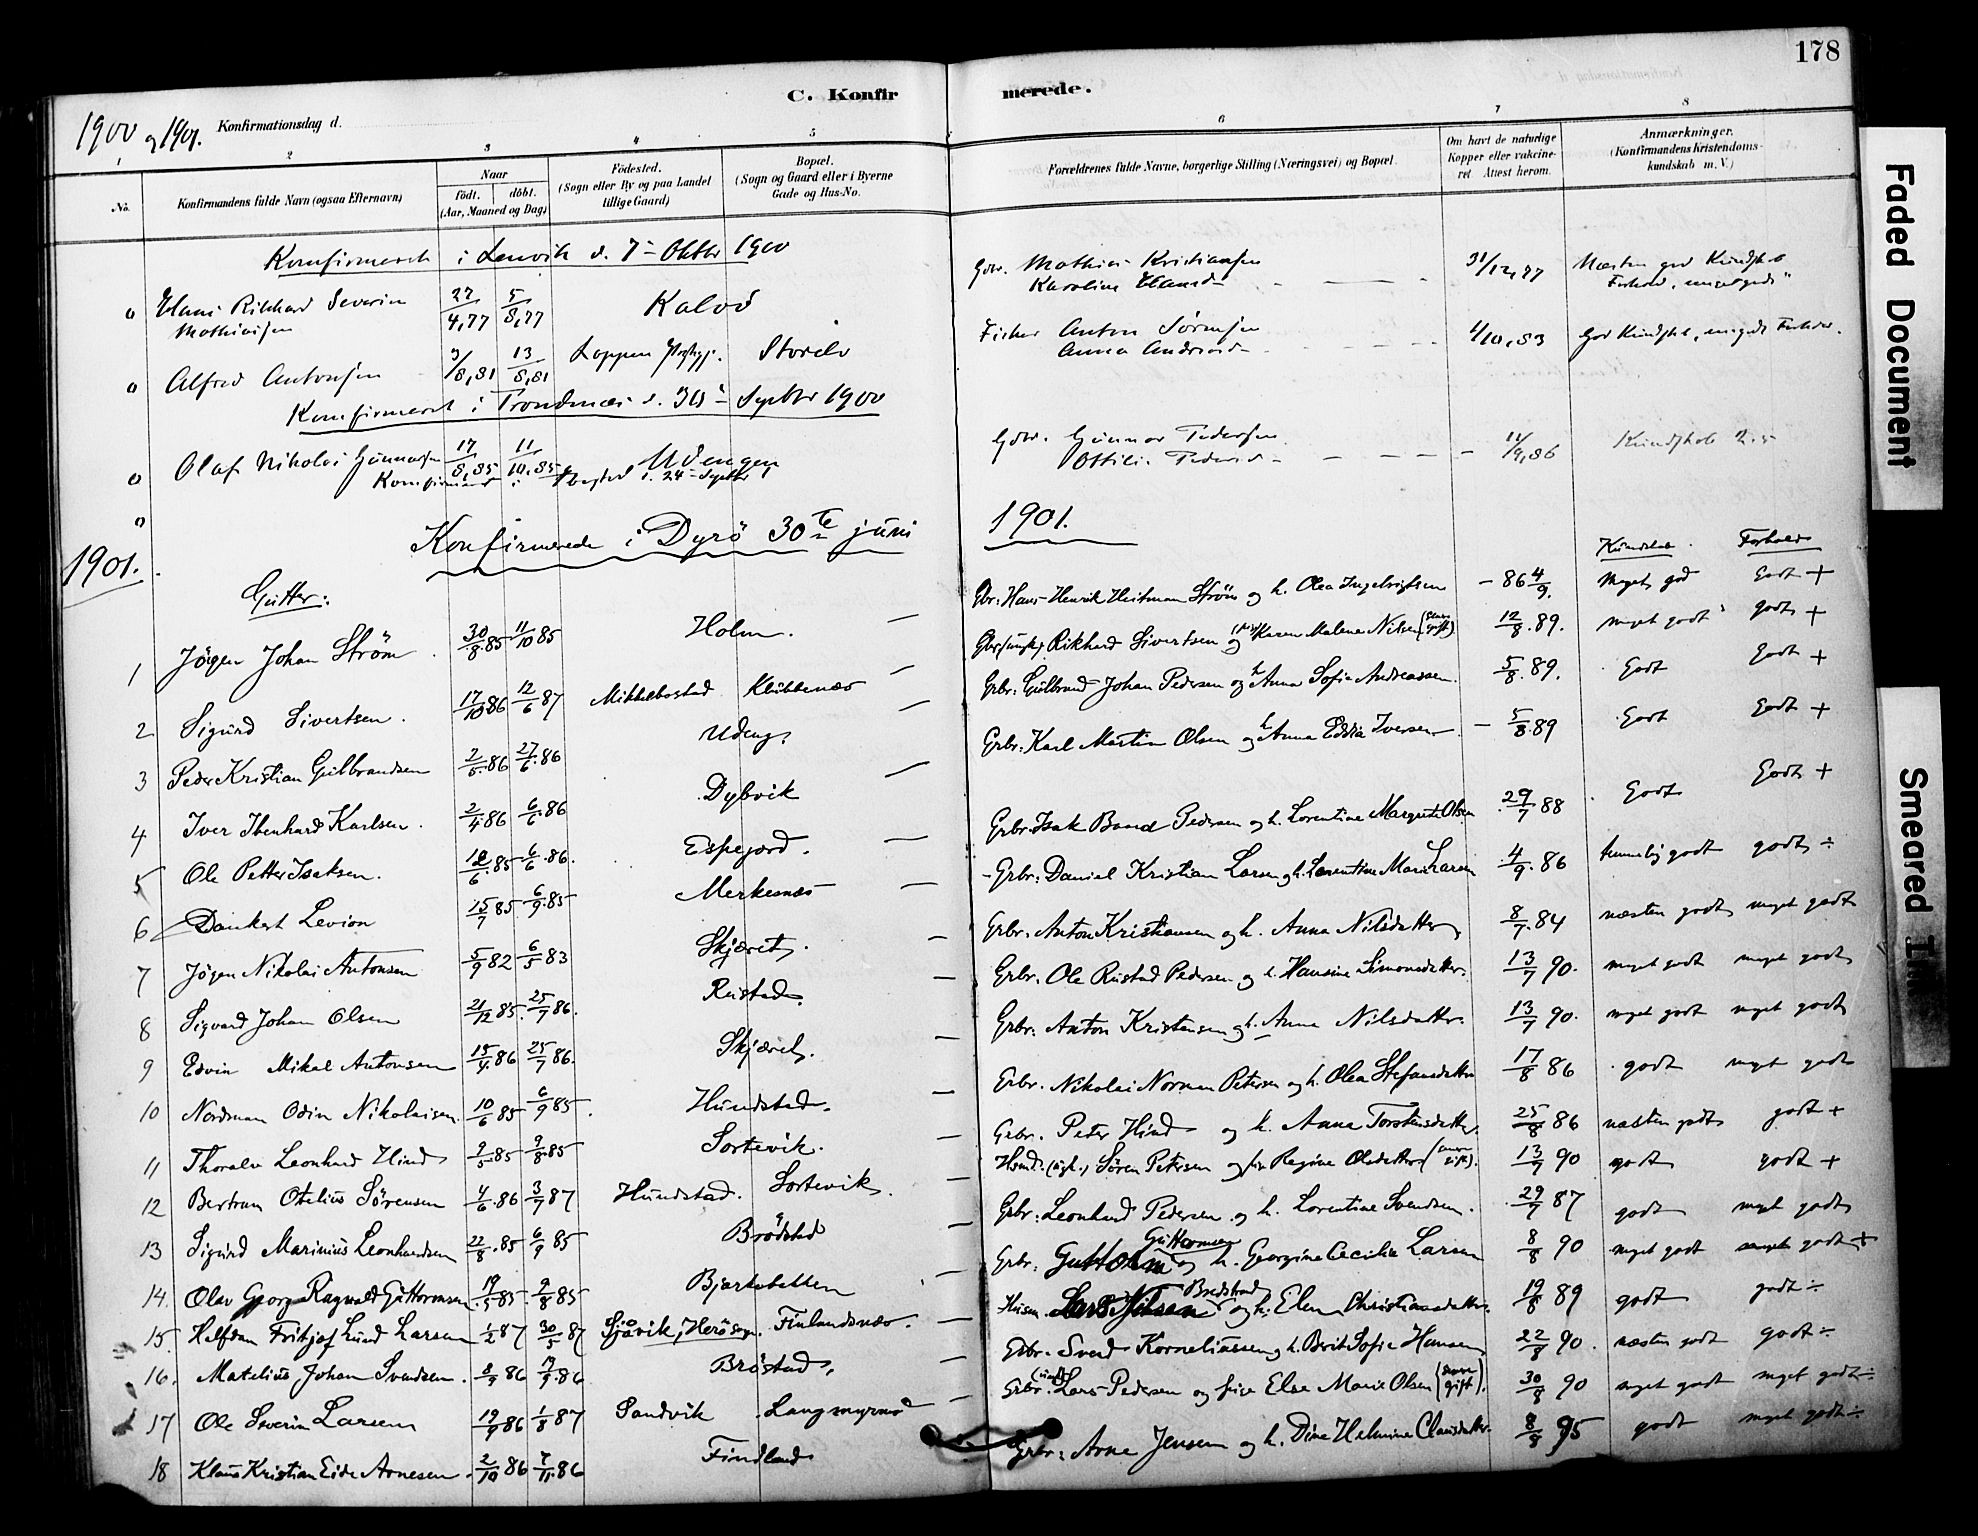 178
C. Konfirmerede.
1900 og 1901. Konfirmationsdag d.
1 2 3 4 5 6 7 8
No. Konfirmandens fulde Navn (ogsaa Efternavn) Naar født. døbt. (Aar, Maaned og Dag) Fødested. (Sogn eller By og paa Landet tillige Gaard) Bopæl. (Sogn og Gaard eller i Byerne Gade og Hus-No. Forældrenes fulde Navne, borgerlige Stilling (Næringsvei) og Bopæl. Om havt de naturlige Kopper eller vakcineret Attest herom. Anmærkninger. (Konfirmandens Kristendomskundskab m. V.)
Konfirmeret i Lenvik d. 7 Oktbr 1900
0 Hans Rikhard Severin Mathisen 27/4,77 5/8,77 Kalvø Gbr. Mathias Kristiansen Karoline Hansd 31/12,77 Næsten god Kundskab
0 Alfred Antonsen 3/8,81 13/8,81 Loppen Storelv Fisker Anton Sørensen Anna Andreasd 1/10,83 God Kundskab, meget godt Forhold.
Konfirmeret i Trondenæs d. 30 Septbr 1900
0 Olaf Nikolai Gunnarsen 17/8,85 11/10,85 Udengen Gbr. Gunnar Pedersen Ottilie Pedersd 14/9,86 Kundskab 2.5
Konfirmeret i Ibestad d. 24 Septbr
0
1901. Konfirmerede i Dyrö 30te juni 1901.
Kundskab. Forhold
Gutter:
1 Jörgen Johan Ström 30/8.85 11/10 85 Holm. Gbr: Hans Henrik Heitman Ström og h. Olea Ingebrigtsen - 86 4/9. Meget god Godt +
2 Sigurd Sivertsen. 17/10 86 12/6 87 Mikkelbostad Klubbenæs Gbr (ungk) Rikhard Sivertsen og (pige) Karen Malene Nilsen (senere gift) 12/8.89. meget godt godt +
3 Peder Kristian Gulbrandsen 2/5.86 27/6.86 Udeng. Grbr: Gulbrand Johan Pedersen og h. Anna Sofie Andreassen. 5/8.89. Godt Godt +
4 Iver Ibenhard Karlsen. 2/4.86 6/6.86 Dybvik Grbr: Karl Martin Olsen og h. Anna Eddia Iversen. - 5/8.89 Godt Godt +
5 Ole Petter Isaksen. 6.85 6/6.86. Espejord. Grbr. Isak Baard Pedersen og h. Lorentine Margrete Olsen 29/7 88 Godt Godt +
6 Dankert Levion 15/7 85 6/9.85 Merkesnæs Grbr: Daniel Kristian Larsen og h. Lorentine Marie Larsen 4/9.86 temmelig godt godt ÷
7 Jögen Nikolai Antonsen 5/9 82 6/5 83 Skjæret. Grbr. Anton Kristiansen og h. Anna Nilsdatter 8/7.84 næsten godt meget godt
8 Sigvard Johan Olsen 21/12 85. 25/7 86. Rustad. Grbr. Ole Rustad Pedersen og h. Hansine Simonsdatter. 13/7 90. meget godt meget godt
9 Edvin Mikal Antonsen 15/4 86 25/7 86. Skjæret. Grbr. Anton Kristensen og h. Anna Nilsdatter. 13/7 90. meget godt meget godt
10 Nordman Odin Nikolaisen. 10/6 85 6/9 85. Hundstad. Grbr. Nikolai Norman Petersen og h. Olea Stefansdatter 17/8 86 godt meget godt
11 Thoralv Leonhard Hind 9/5 85 9/8.85 Sortevik. Grbr. Peter Hind og h. Anna Torstensdatter. 25/8 86 næsten godt godt +
12 Bertram Otelius Sörensen 4/6.86 3/7 87 Hundstad. Sortevik. Hsmd. Sören Petersen og pige Regine Olsdatter (senere gift). 13/7 90 godt godt +
13 Sigurd Marinius Leonhardsen 22/8.85 6/9 85 Brödstad Grbr: Leonhard Pedersen og h. Lorentine Svendsen. 29/7 87 godt meget godt
14. Olav Georg Ragvald Guttormsen 19/5 85. 9/8 85 Bjarkebakken Grbr: Guttorm Guttormsen og h. Georgine Cecilie Larsen 8/8 90 meget godt meget godt +
15. Halfdan Fritjof Lund Larsen 1/2 87 30/5 87 Sjövik, Herösogn. Finlandsnæs. Husm. Lars Nilsen Bredstrand og h. Elen Christiansdatter. 19/8 89 godt godt ÷
16. Matelius Johan Svendsen. 8/7 86 Bröstad, Grbr. Svend Korneliussen og h. Berit Sofie Hansen 22/8 90. næsten godt godt ÷
17 Ole Severin Larsen 19/9 86 1/8 87 Sandvik Langmyrnes Grbr. Lars Pedersen og pige Else Marie Olsen (senere gift). 30/8 90 meget godt meget godt ÷
18 Klaus Kristian Eide Arnesen. 2/10 86 7/11.86 Findland Grbr: Arne Jensen og h. Dine Helmine Clausdatter. 8/8 95 godt meget godt ÷
Faded Document
Smeared Ink